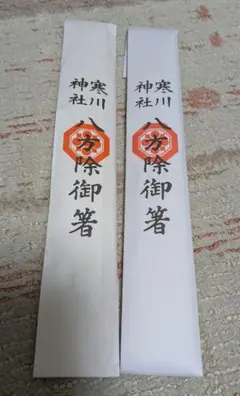 寒川
神社
八方除御箸
寒川
神社
八方除御箸